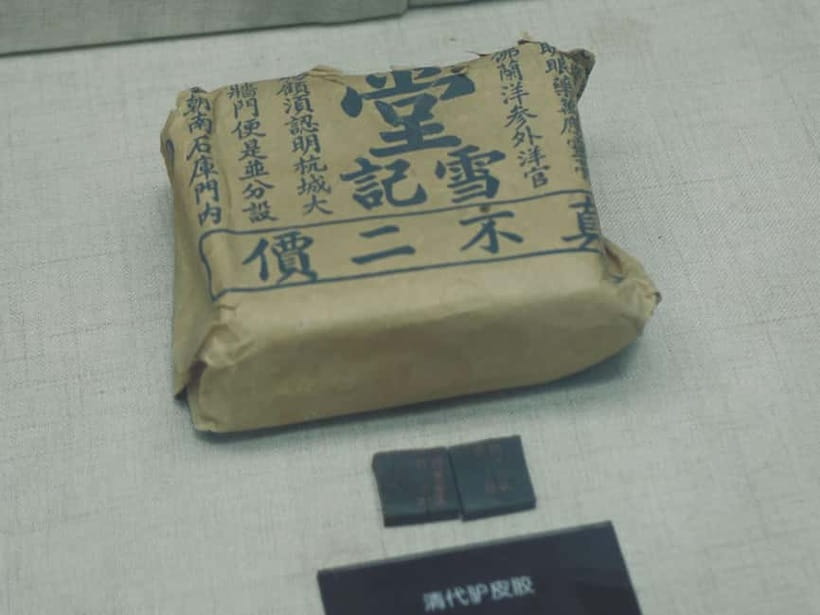 眼藥萬應
蘭洋參外洋官
堂
雪記
顧須認明杭城大
牆門便是並分設
朝南石庫門内
真不二價
清代驴皮胶